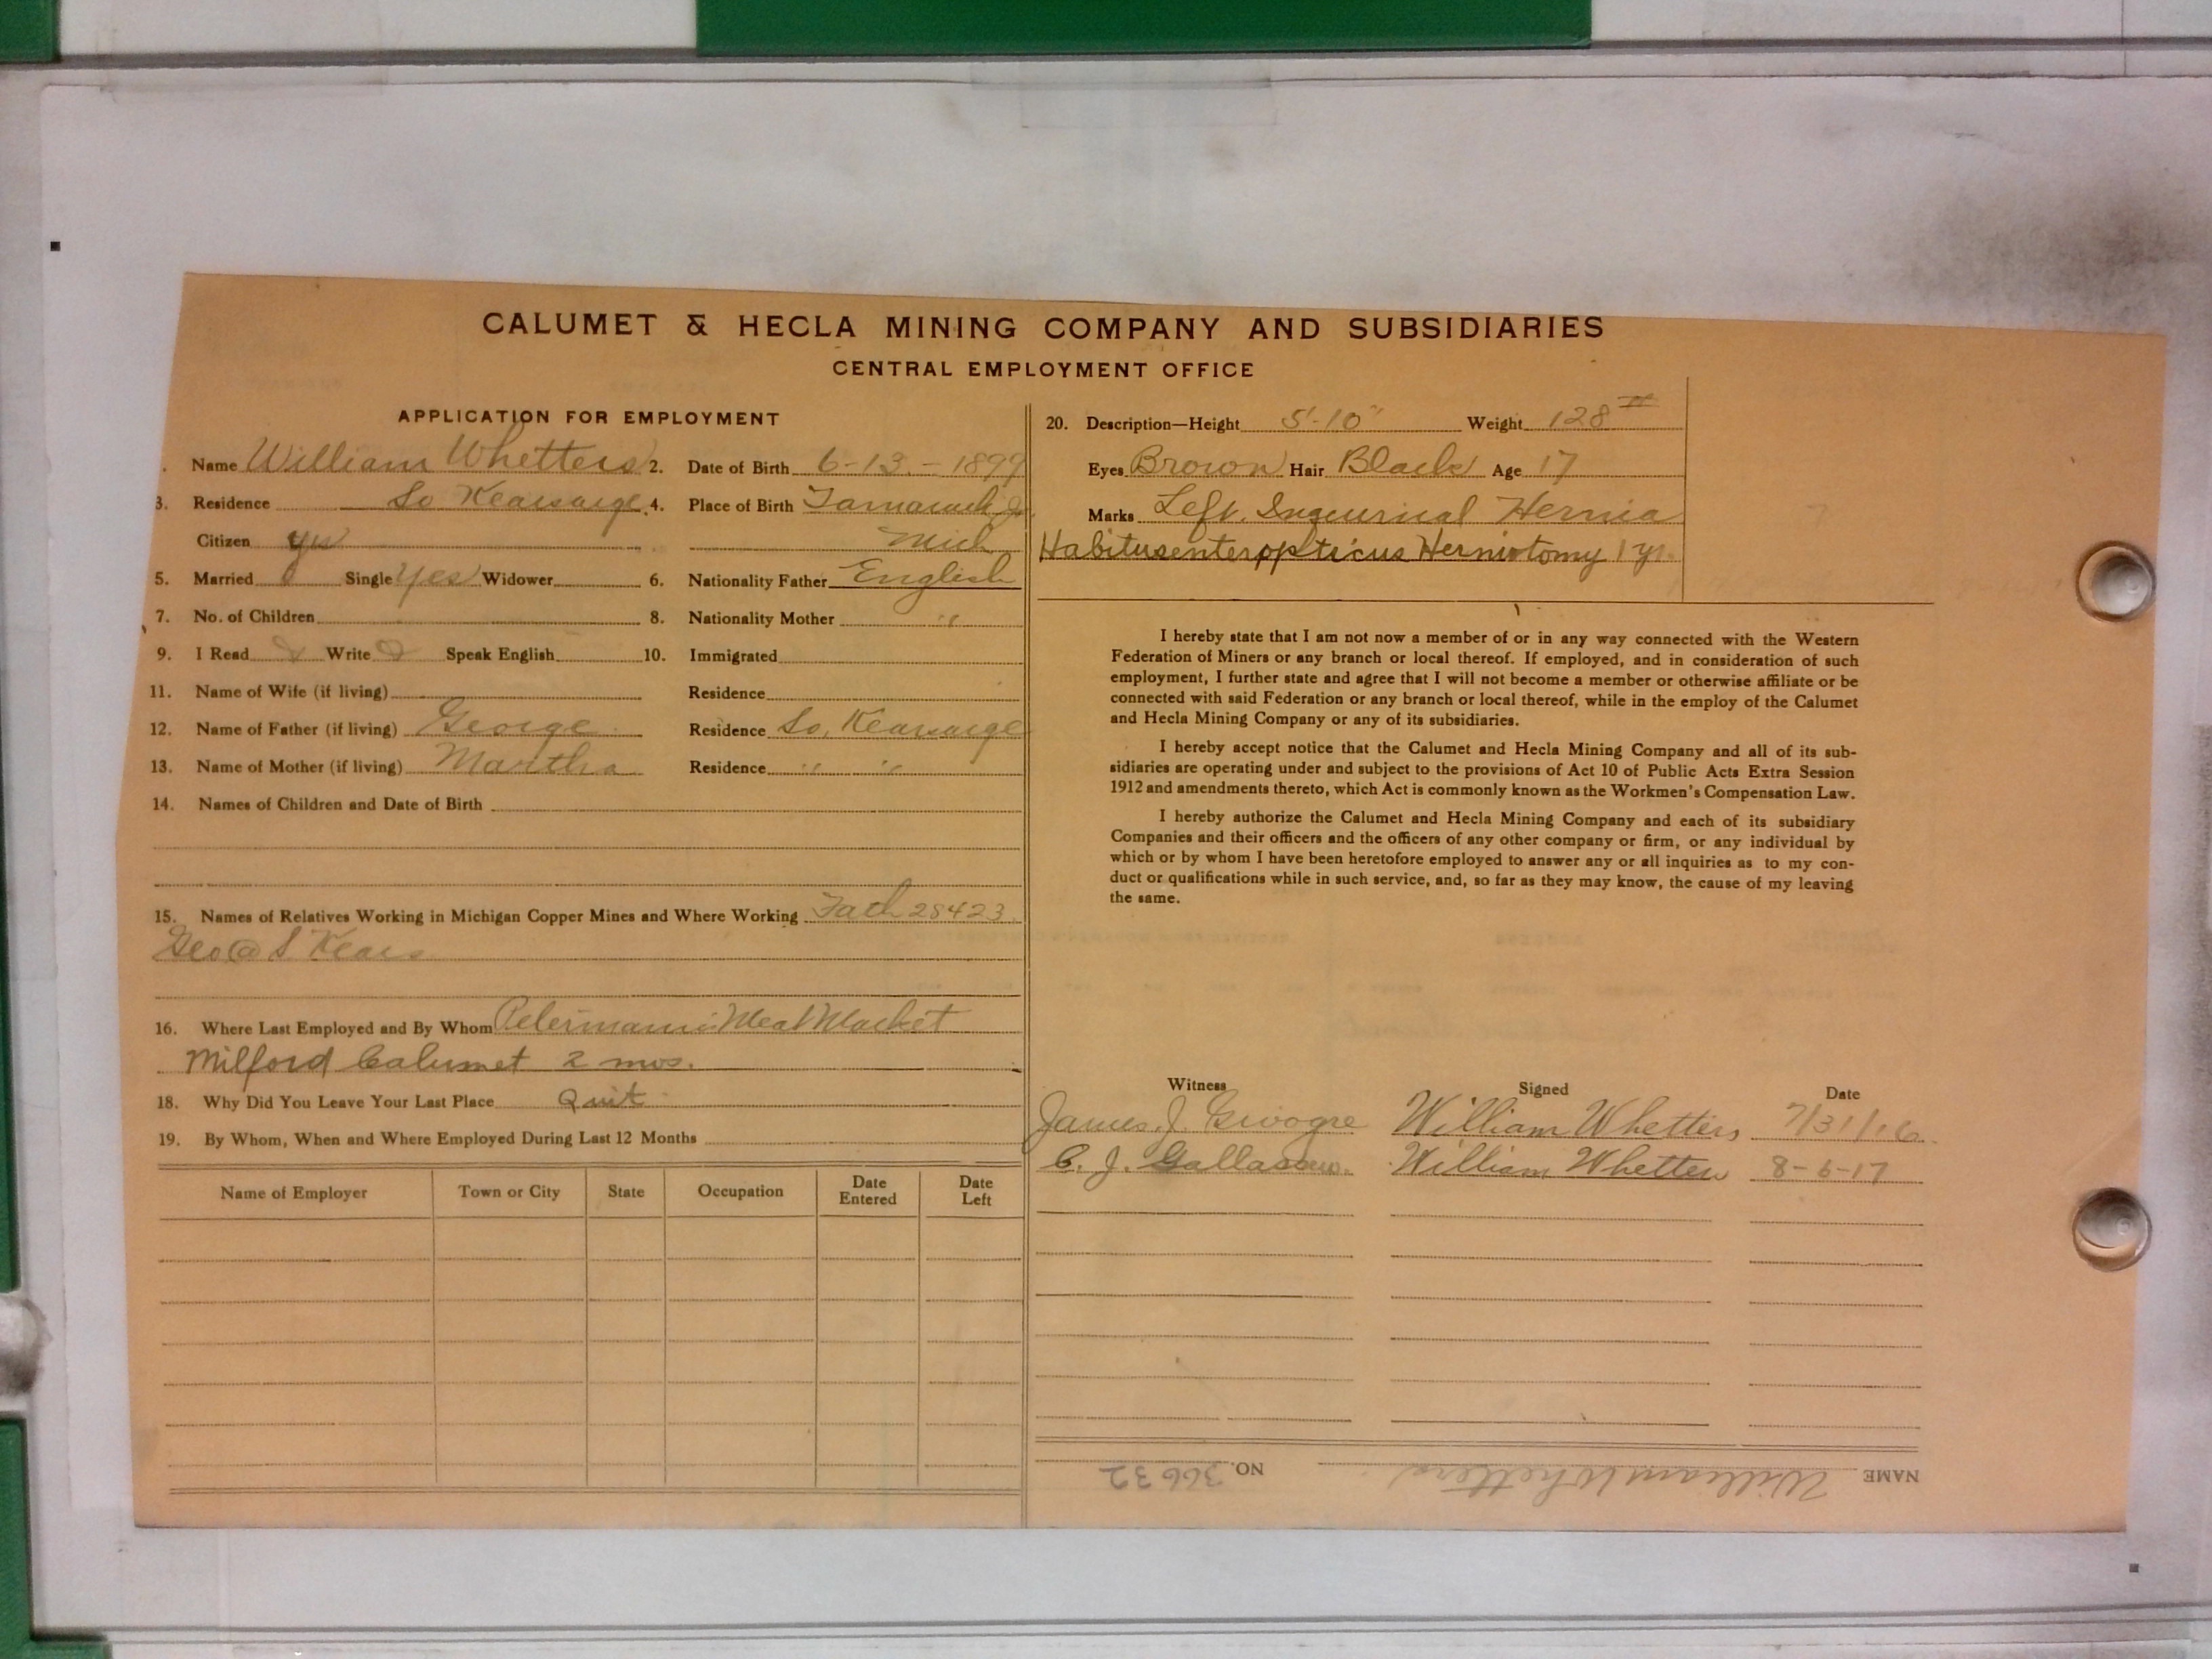 CALUMET & HECLA MINING COMPANY AND SUBSIDIARIES
CENTRAL EMPLOYMENT OFFICE
APPLICATION FOR EMPLOYMENT
. Name William Whetters 2. Date of Birth 6-13-1899
3. Residence So Kearsarge 4. Place of Birth Tamarack Jc
Citizen yes Mich
5. Married Single Yes Widower 6. Nationality Father English
7. No. of Children 8. Nationality Mother " "
9. I Read Write Speak English 10. Immigrated
11. Name of Wife (if living) Residence
12. Name of Father (if living) George Residence So. Kearsarge
13. Name of Mother (if living) Martha Residence " "
14. Names of Children and Date of Birth
15. Names of Relatives Working in Michigan Copper Mines and Where Working Fath 28423
Geo @ S. Kears
16. Where Last Employed and By Whom Petermann's Meat Market
Milford Calumet 2 mos.
18. Why Did You Leave Your Last Place Quit
19. By Whom, When and Where Employed During Last 12 Months
Name of Employer Town or City State Occupation Date Entered Date Left
20. Description—Height 5'-10" Weight 128
Eyes Brown Hair Black Age 17
Marks Left. Inguurical Hernia
Habitusenteropticus Herniotomy 1 yr.
I hereby state that I am not now a member of or in any way connected with the Western
Federation of Miners or any branch or local thereof. If employed, and in consideration of such
employment, I further state and agree that I will not become a member or otherwise affiliate or be
connected with said Federation or any branch or local thereof, while in the employ of the Calumet
and Hecla Mining Company or any of its subsidiaries.
I hereby accept notice that the Calumet and Hecla Mining Company and all of its sub-
sidiaries are operating under and subject to the provisions of Act 10 of Public Acts Extra Session
1912 and amendments thereto, which Act is commonly known as the Workmen's Compensation Law.
I hereby authorize the Calumet and Hecla Mining Company and each of its subsidiary
Companies and their officers and the officers of any other company or firm, or any individual by
which or by whom I have been heretofore employed to answer any or all inquiries as to my con-
duct or qualifications while in such service, and, so far as they may know, the cause of my leaving
the same.
Witness Signed Date
James. J. William Whetters 7/31/16
C. J. William Whetters 8-6-17
NAME William Whetters NO. 36632